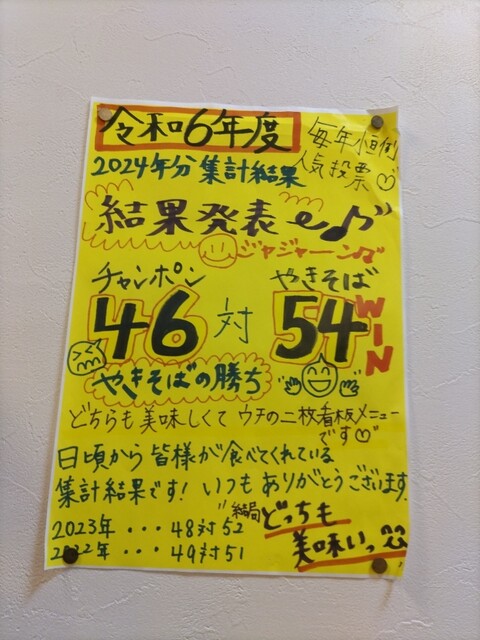 令和6年度
毎年恒例
人気投票♡
2024年分 集計結果
結果発表〜♪
ジャジャーン♫
チャンポン やきそば
46 対 54 WIN
やきそばの勝ち
どちらも美味しくて ウチの二枚看板メニュー
です♡
日頃から 皆様が食べてくれている
集計結果です! いつも ありがとうございます.
2023年 ・・・ 48対52
2022年 ・・・ 49対51
結局 どっちも
美味いっ